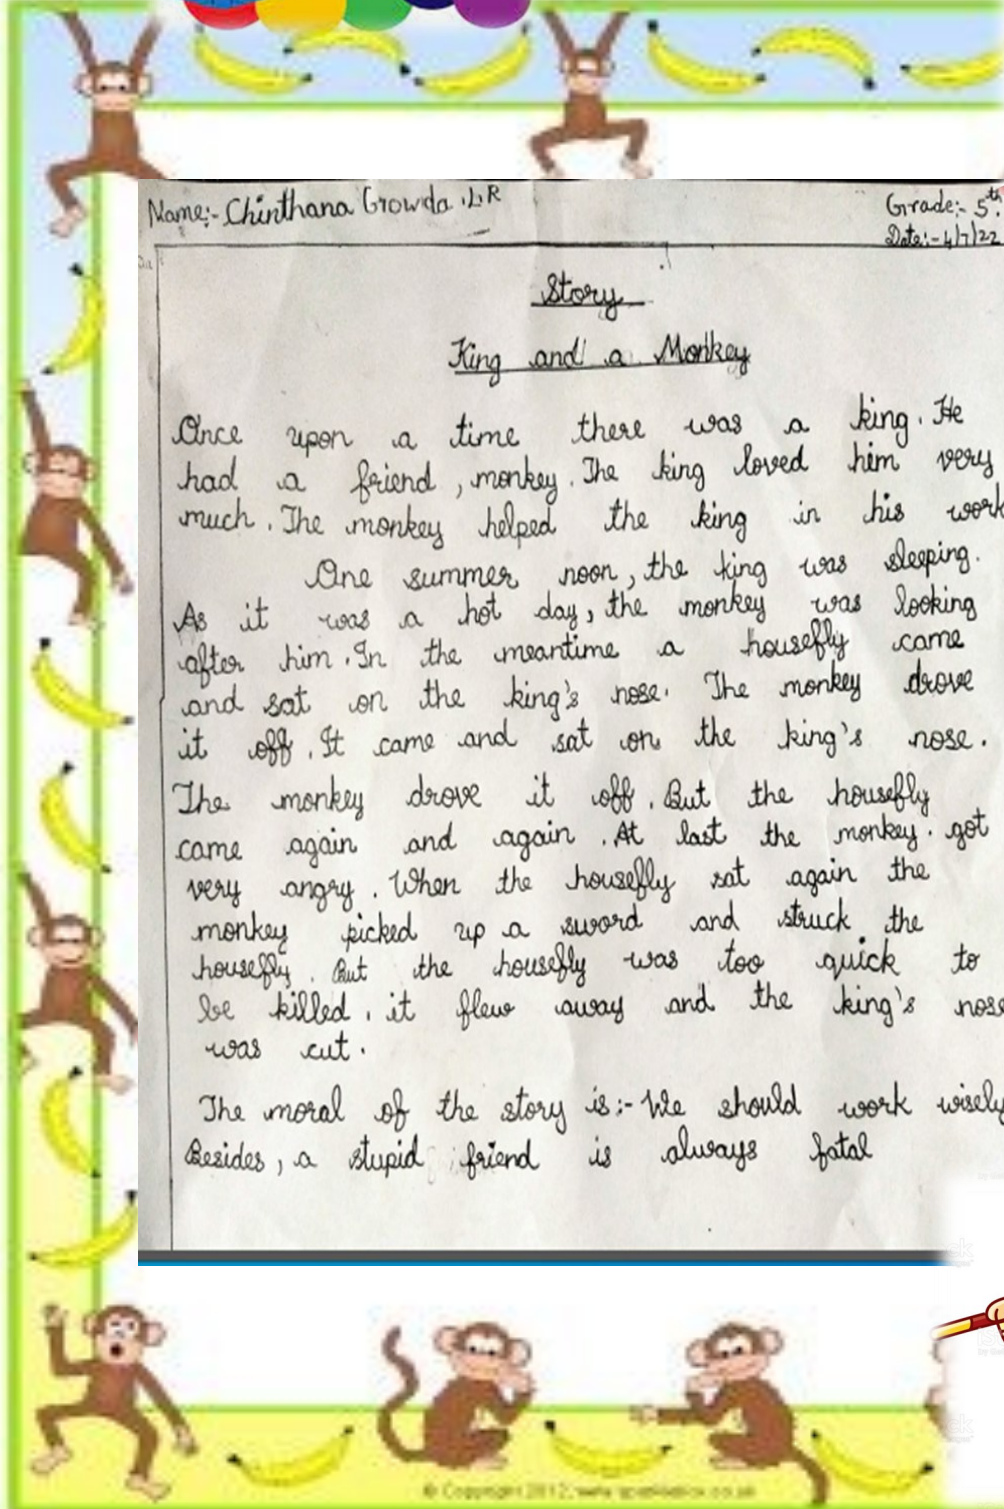 Name:- Chinthana Growda .L.R
Grade:- 5th.
Date:- 4/7/22
Story
King and a Monkey
Once upon a time there was a king. He
had a friend, monkey. The king loved him very
much. The monkey helped the king in his work
One summer noon, the king was sleeping.
As it was a hot day, the monkey was looking
after him. In the meantime a housefly came
and sat on the king's nose. The monkey drove
it off. It came and sat on the king's nose.
The monkey drove it off. But the housefly
came again and again. At last the monkey. got
very angry. When the housefly sat again the
monkey picked up a sword and struck the
housefly. But the housefly was too quick to
be killed. it flew away and the king's nose
was cut.
The moral of the story is:- We should work wisely
Besides, a stupid friend is always fatal
© Copyright 2012, www.sparklebox.co.uk